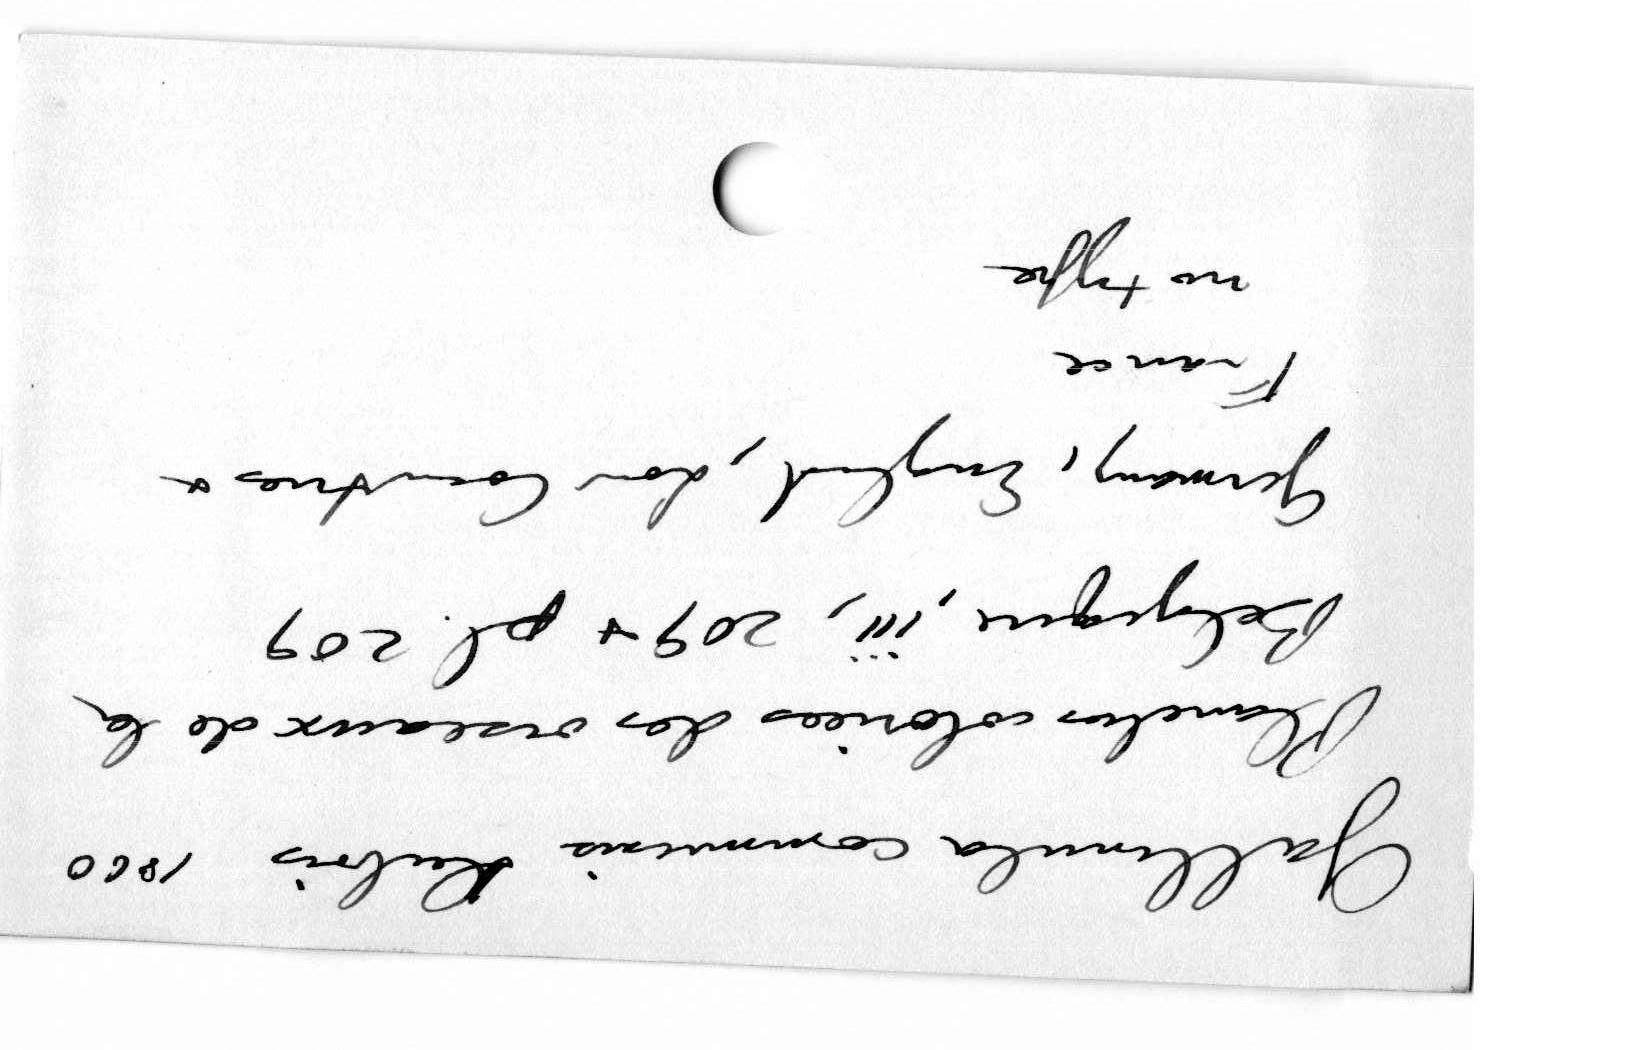 Gallinula communis Dubois 1860
Planches coloriées des oiseaux de la
Belgique, iii, 209 & pl. 209
Germany, England, Low Countries &
France
no type